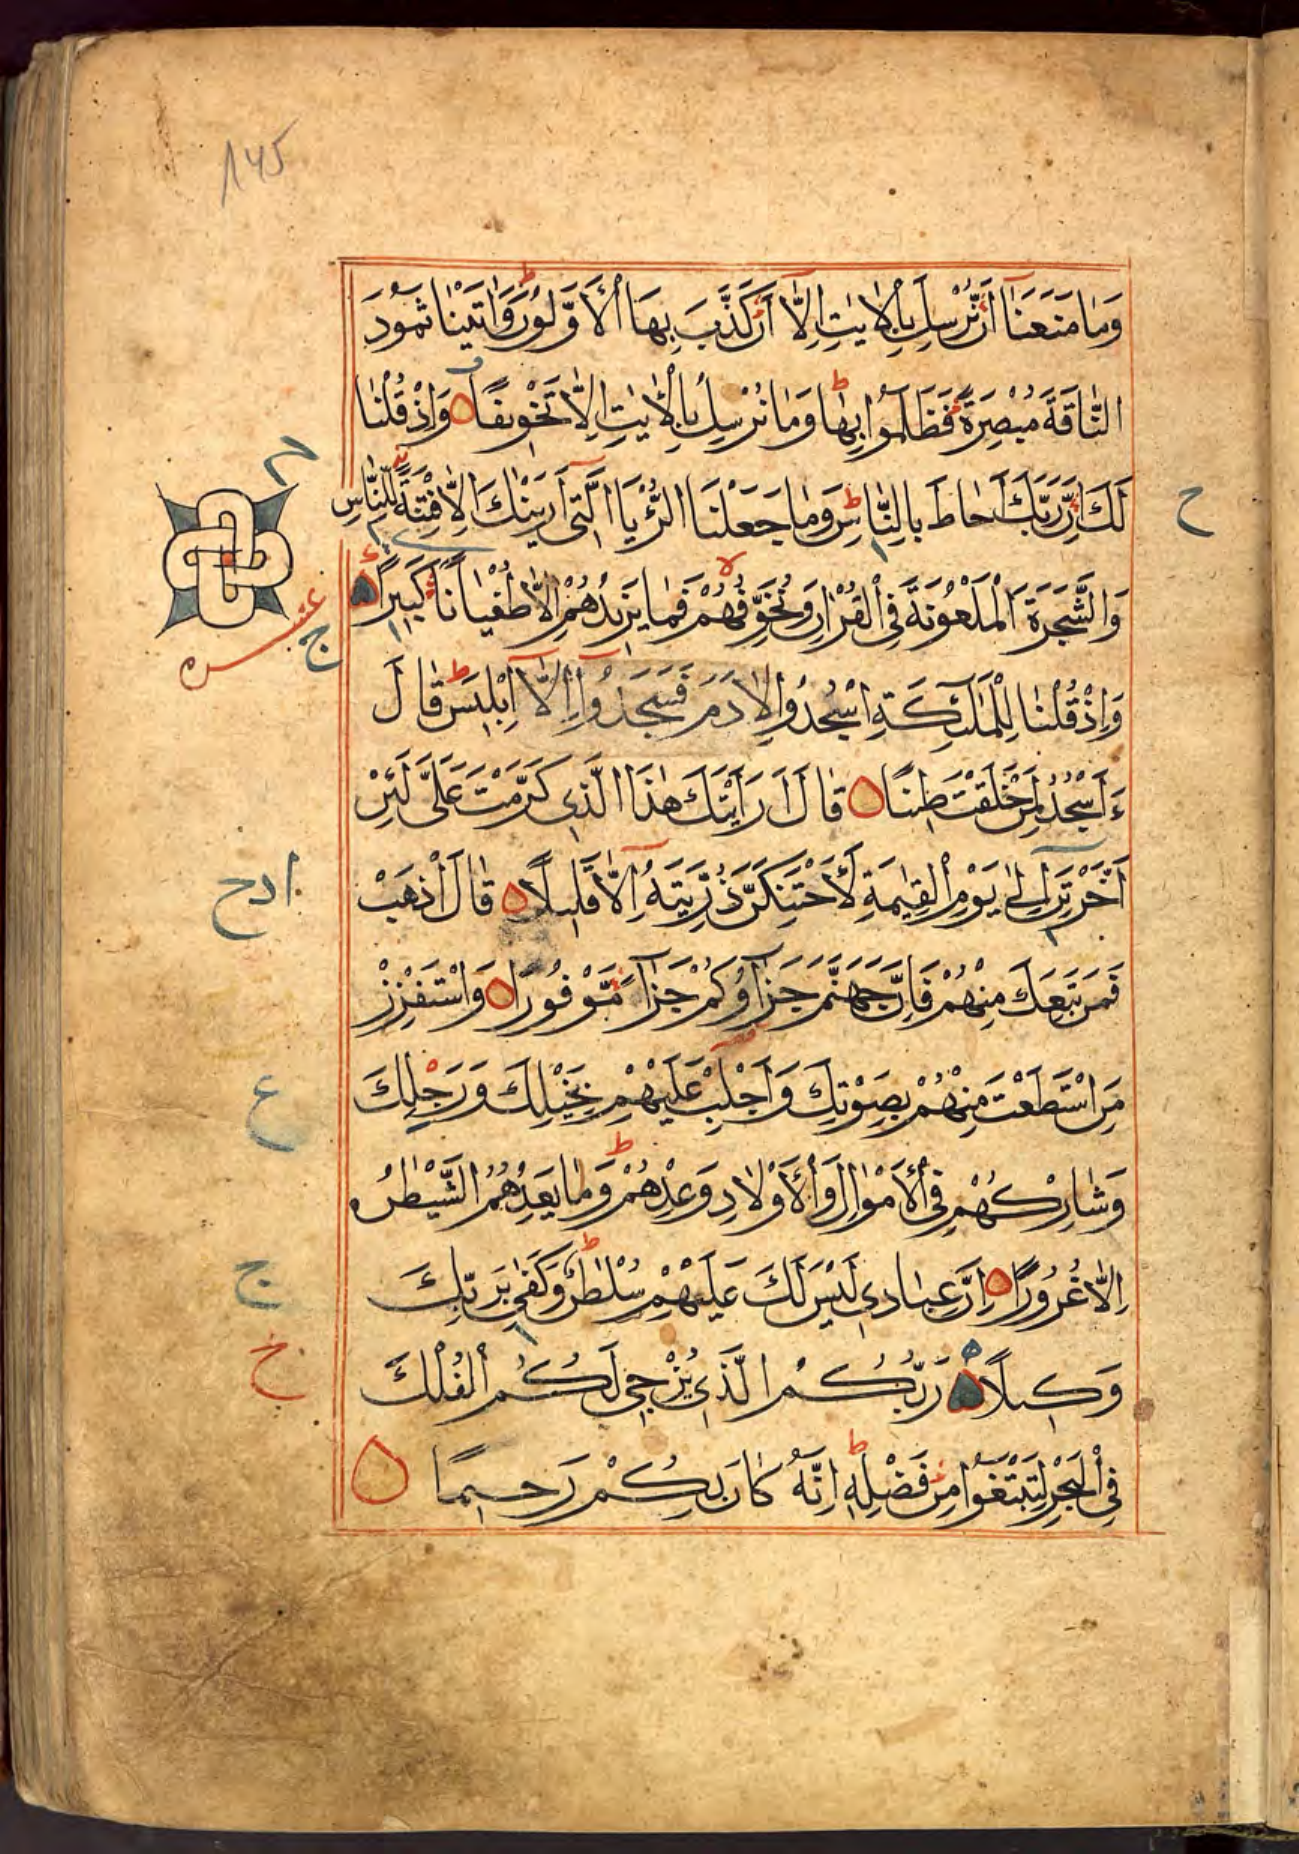 ١٧٥
وَمَا مَنَعَنَآ اَنْ نُرْسِلَ بِالْاٰيٰتِ اِلَّآ اَنْ كَذَّبَ بِهَا الْاَوَّلُونَ وَاٰتَيْنَا ثَمُودَ
النَّاقَةَ مُبْصِرَةً فَظَلَمُوا بِهَا وَمَا نُرْسِلُ بِالْاٰيٰتِ اِلَّا تَخْوِيفًا وَاِذْ قُلْنَا
لَكَ اِنَّ رَبَّكَ اَحَاطَ بِالنَّاسِ وَمَا جَعَلْنَا الرُّءْيَا الَّتِىٓ اَرَيْنٰكَ اِلَّا فِتْنَةً لِلنَّاسِ
ح
وَالشَّجَرَةَ الْمَلْعُونَةَ فِى الْقُرْاٰنِ وَنُخَوِّفُهُمْ فَمَا يَزِيدُهُمْ اِلَّا طُغْيَانًا كَبِيرًا
عشره
ج
وَاِذْ قُلْنَا لِلْمَلٰٓئِكَةِ اسْجُدُوا لِاٰدَمَ فَسَجَدُوٓا اِلَّآ اِبْلِيسَ قَالَ
ءَاَسْجُدُ لِمَنْ خَلَقْتَ طِينًا قَالَ اَرَاَيْتَكَ هٰذَا الَّذِى كَرَّمْتَ عَلَىَّ لَئِنْ
اَخَّرْتَنِ اِلٰى يَوْمِ الْقِيٰمَةِ لَاَحْتَنِكَنَّ ذُرِّيَّتَهُٓ اِلَّا قَلِيلًا قَالَ اذْهَبْ
ادح
فَمَنْ تَبِعَكَ مِنْهُمْ فَاِنَّ جَهَنَّمَ جَزَآؤُكُمْ جَزَآءً مَوْفُورًا وَاسْتَفْزِزْ
مَنِ اسْتَطَعْتَ مِنْهُمْ بِصَوْتِكَ وَاَجْلِبْ عَلَيْهِمْ بِخَيْلِكَ وَرَجِلِكَ
ع
وَشَارِكْهُمْ فِى الْاَمْوَالِ وَالْاَوْلَادِ وَعِدْهُمْ وَمَا يَعِدُهُمُ الشَّيْطٰنُ
اِلَّا غُرُورًا اِنَّ عِبَادِى لَيْسَ لَكَ عَلَيْهِمْ سُلْطٰنٌ وَكَفٰى بِرَبِّكَ
ج
وَكِيلًا رَبُّكُمُ الَّذِى يُزْجِى لَكُمُ الْفُلْكَ
خ
فِى الْبَحْرِ لِتَبْتَغُوا مِنْ فَضْلِهِ اِنَّهُ كَانَ بِكُمْ رَحِيمًا